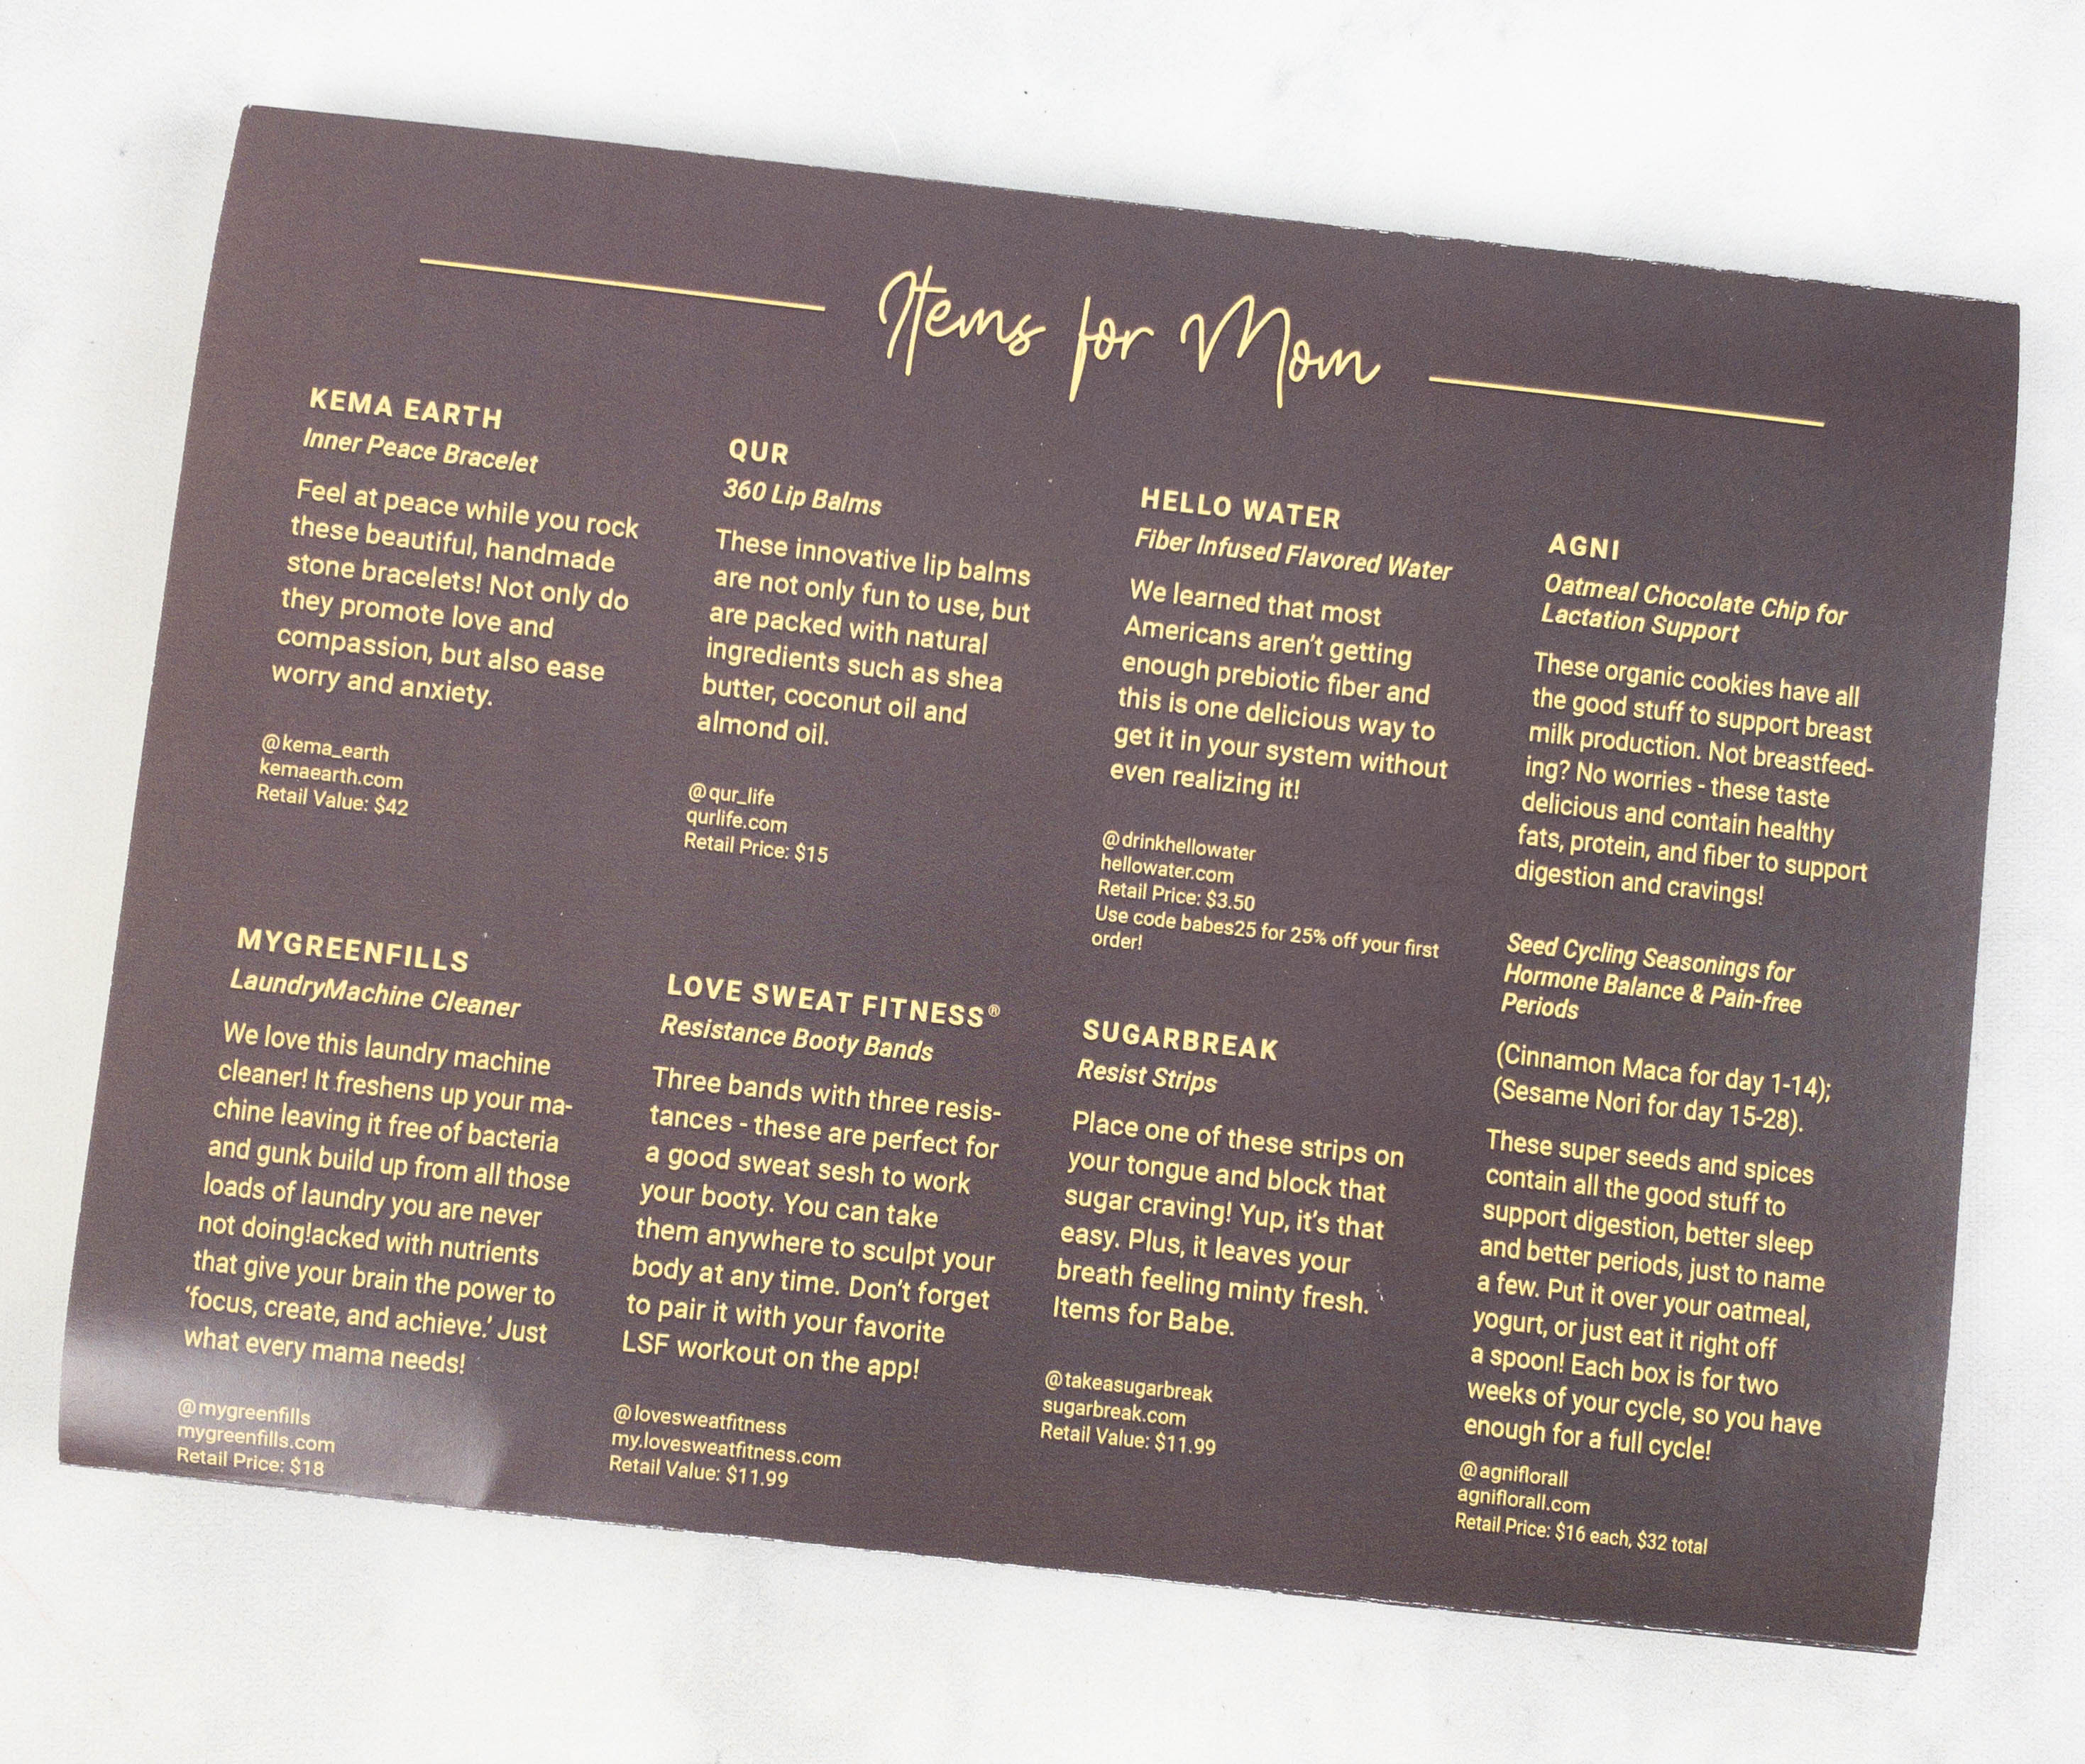 Items for Mom
KEMA EARTH
Inner Peace Bracelet
Feel at peace while you rock
these beautiful, handmade
stone bracelets! Not only do
they promote love and
compassion, but also ease
worry and anxiety.
@kema_earth
kemaearth.com
Retail Value: $42
MYGREENFILLS
LaundryMachine Cleaner
We love this laundry machine
cleaner! It freshens up your ma-
chine leaving it free of bacteria
and gunk build up from all those
loads of laundry you are never
not doing!acked with nutrients
that give your brain the power to
‘focus, create, and achieve.’ Just
what every mama needs!
@mygreenfills
mygreenfills.com
Retail Price: $18
QUR
360 Lip Balms
These innovative lip balms
are not only fun to use, but
are packed with natural
ingredients such as shea
butter, coconut oil and
almond oil.
@qur_life
qurlife.com
Retail Price: $15
LOVE SWEAT FITNESS®
Resistance Booty Bands
Three bands with three resis-
tances - these are perfect for
a good sweat sesh to work
your booty. You can take
them anywhere to sculpt your
body at any time. Don’t forget
to pair it with your favorite
LSF workout on the app!
@lovesweatfitness
my.lovesweatfitness.com
Retail Value: $11.99
HELLO WATER
Fiber Infused Flavored Water
We learned that most
Americans aren’t getting
enough prebiotic fiber and
this is one delicious way to
get it in your system without
even realizing it!
@drinkhellowater
hellowater.com
Retail Price: $3.50
Use code babes25 for 25% off your first
order!
SUGARBREAK
Resist Strips
Place one of these strips on
your tongue and block that
sugar craving! Yup, it’s that
easy. Plus, it leaves your
breath feeling minty fresh.
Items for Babe.
@takeasugarbreak
sugarbreak.com
Retail Value: $11.99
AGNI
Oatmeal Chocolate Chip for
Lactation Support
These organic cookies have all
the good stuff to support breast
milk production. Not breastfeed-
ing? No worries - these taste
delicious and contain healthy
fats, protein, and fiber to support
digestion and cravings!
Seed Cycling Seasonings for
Hormone Balance & Pain-free
Periods
(Cinnamon Maca for day 1-14);
(Sesame Nori for day 15-28).
These super seeds and spices
contain all the good stuff to
support digestion, better sleep
and better periods, just to name
a few. Put it over your oatmeal,
yogurt, or just eat it right off
a spoon! Each box is for two
weeks of your cycle, so you have
enough for a full cycle!
@agniflorall
agniflorall.com
Retail Price: $16 each, $32 total